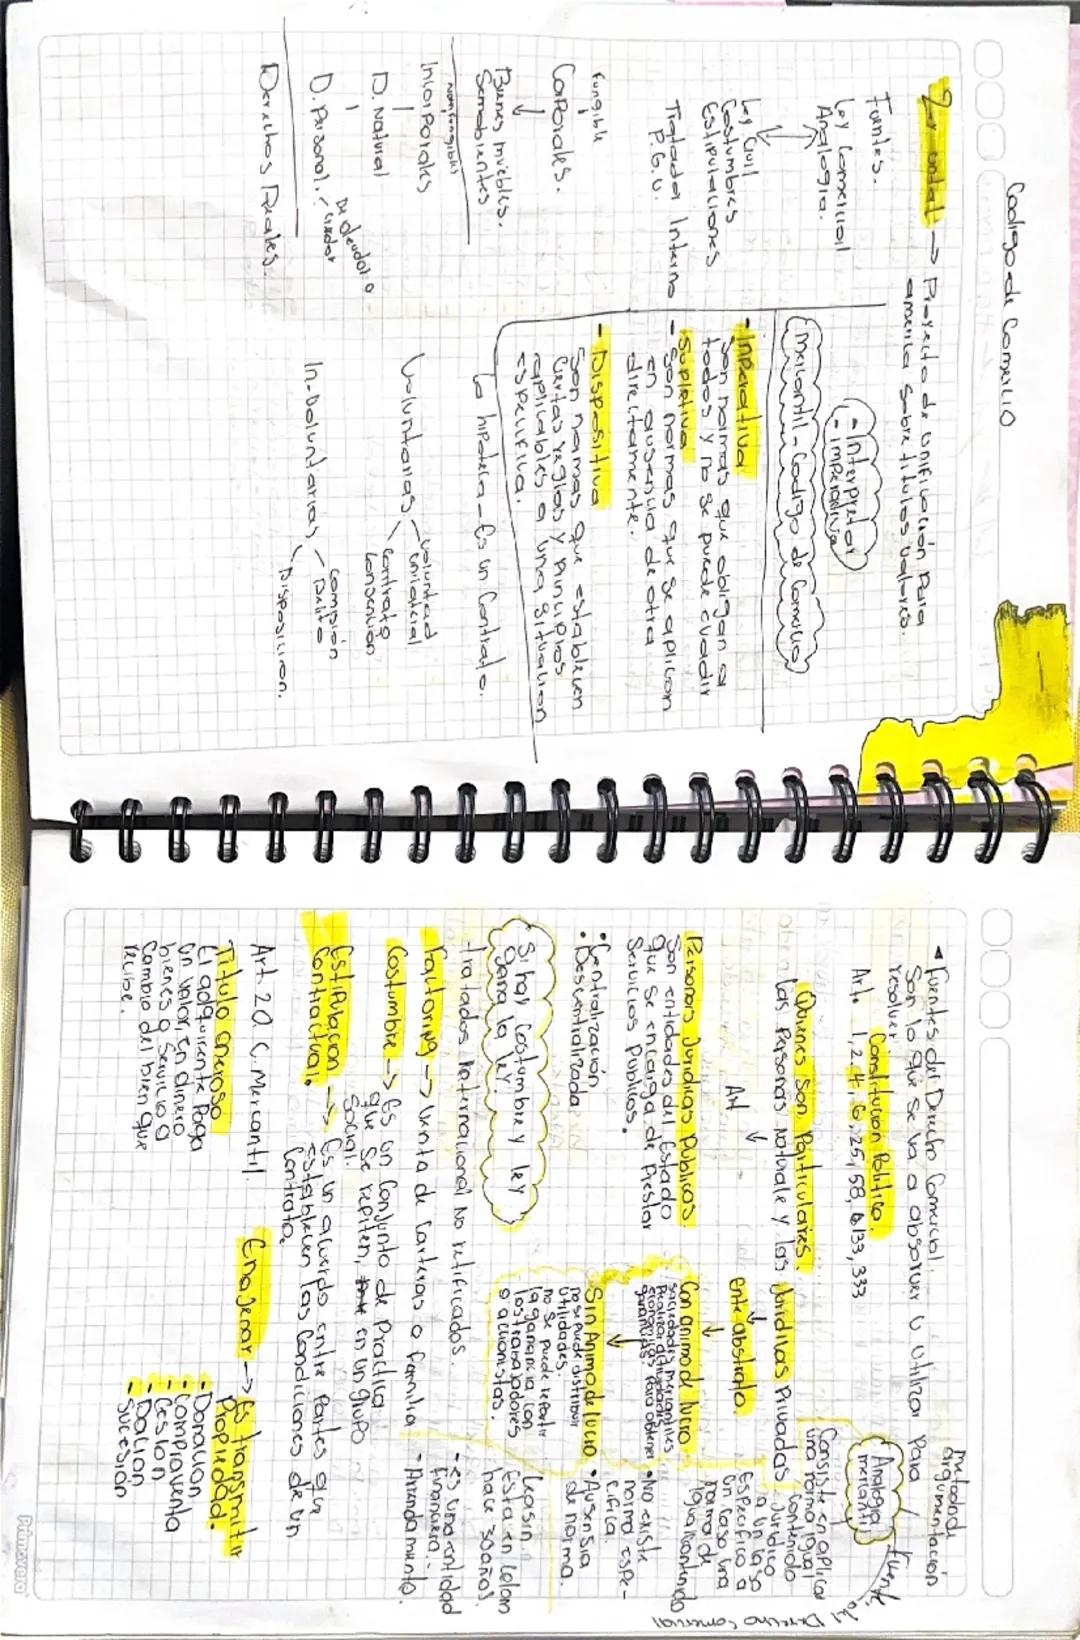 Codigo de Comercio
→ Proyecto de unificación Para
america sobre titulos valores.
Fuentes.
Ley Comercial
Analogia.
- Interpretar
- imperativa
Mercantil - Codigo de Comercio
Ley Civil
Costumbres
Estipulaciones
Tratados Interno
P. G. U.
- Inperativa
Son normas que obligan a
todos y no se puede evadir
- Supletiva
Son normas que se aplican
en ausencia de otra
directamente.
- Dispositiva
Son normas que establecen
ciertas reglas y Principios
aplicables a una situacion
especifica.
Fungible
Corporales.
Bienes muebles.
Semobientes
nomfungibles
Incorporales
D. Natural
D. Personal.
De deudor o
Derechos Reales.
La hipoteca - Es un Contrato.
Voluntarias
voluntad
unilateral
Contrato
Convención
In-Voluntarias
Delito
Disposicion.
Fuentes del Derecho Comercial.
Son lo que se va a absorver u utilizar Para
resolver
metodo de
argumentación
Constitucion Politica.
Art. 1, 2, 4, 6, 25, 58, 133, 333
Analogia
mercantil
Fuente del Derecho Comercial
Quienes Son Particulaires.
Las Personas Naturale y las Juridicas Privadas
Consiste en aplicar
una norma igual
contenido
Juridico
a un caso
Especifico a
un caso una
norma de
igual contenido
Art
ente abstrato.
Personas Juridicas Publicas.
Son entidades del Estado
que se encarga de Prestar
Servicios Publicos.
• Centralización
• Descentralizada
Con animo de lucro
sociedades mercantiles
realiza actividades
economicas Para obtener
ganancias.
Sin Animo de lucro
no se puede distribuir
utilidades.
no se puede repartir
la ganancia con
los trabajadores
o accionistas.
• No existe
norma espe-
cifica.
• Ausensia
de norma.
Si hay Costumbre y ley
gana la ley.
Leasin
Esta en Colom
hace 30 años.
- es una entidad
financiera.
- Arrendamiento.
Tratados Internacional No retificados.
Factoring → Venta de Carteras o familia
Costumbre → Es un Conjunto de Practica
que se repiten, en un grupo
Social.
Estipulacion
Contractual.
→ Es un acuerdo entre Partes que
establecen las Condiciones de un
Contrato.
Art. 20 C. Mercantil.
Titulo oneroso
El adquirente Paga
un valor, en dinero
bienes o Servicio a
cambio del bien que
recibe.
Enagenar → Es transmitir
Propiedad.
- Donación
- Compraventa
- Cesion
- Dacion
- Sucesion
Primavera